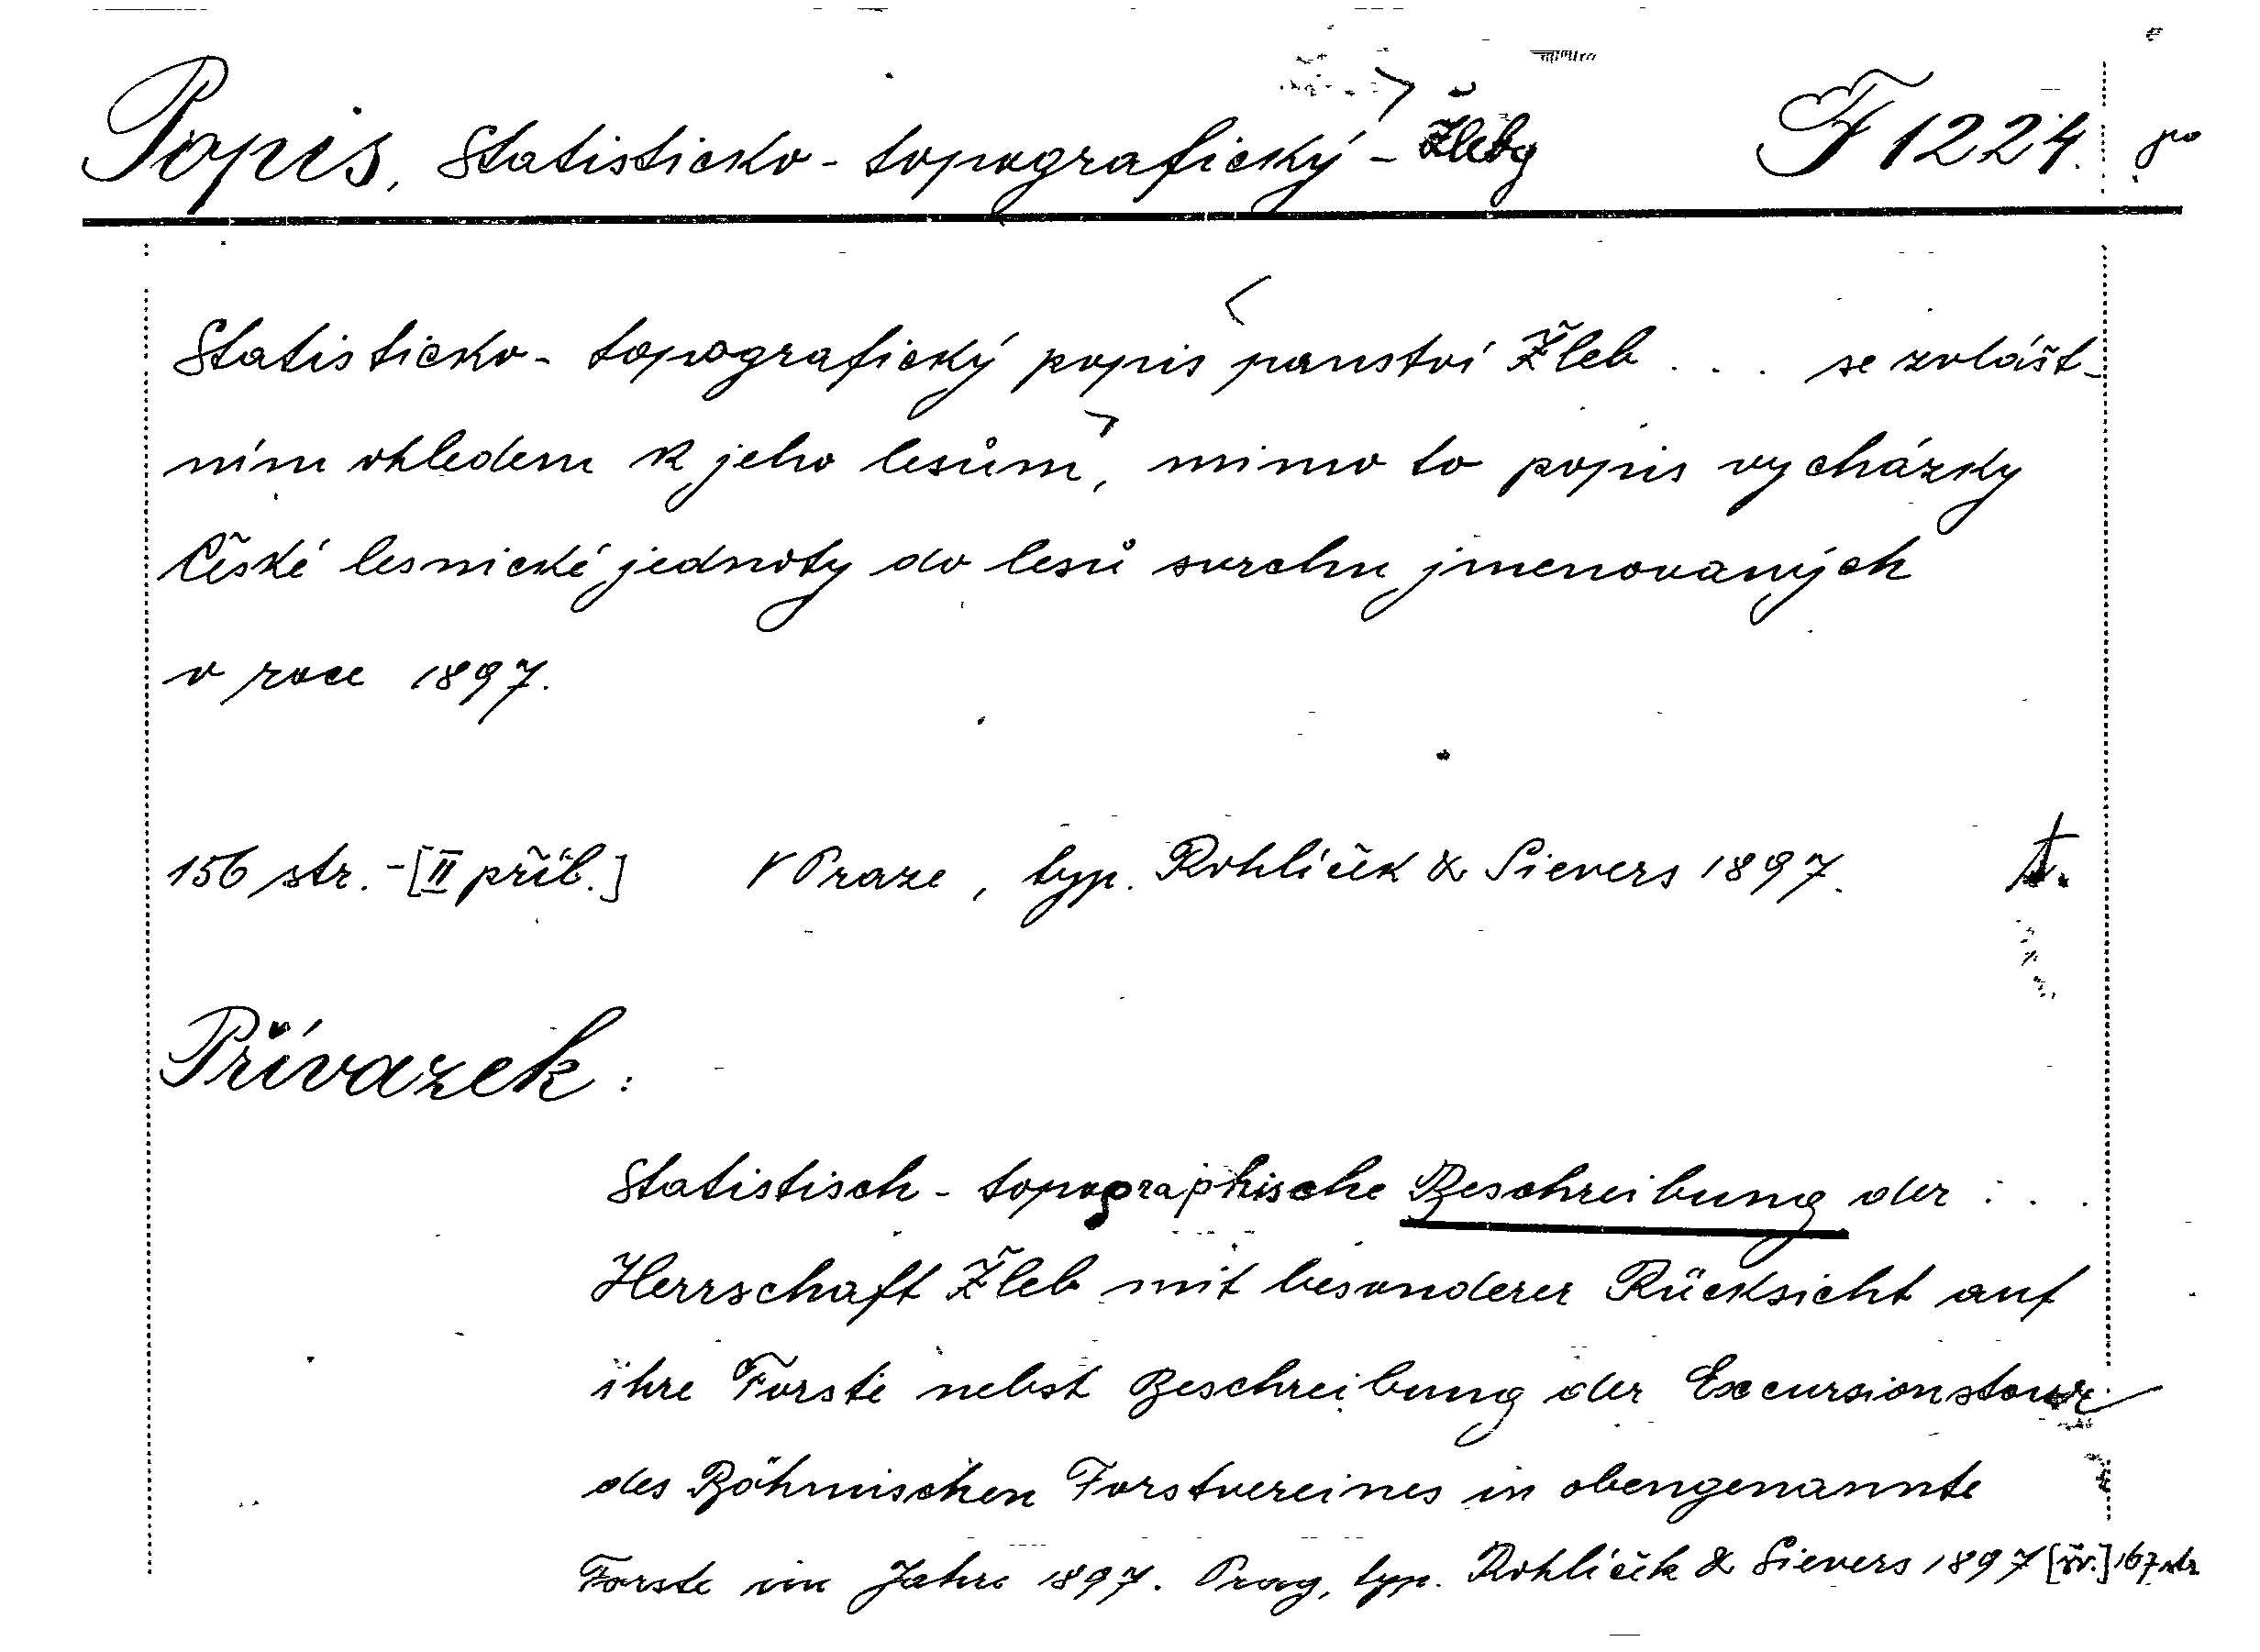 Popis, Statisticko-topografický - Žleby F 1224.
Statisticko-topografický popis panství Žleb . . . se zvlášt-
ním ohledem k jeho lesům, mimo to popis vycházky
České lesnické jednoty do lesů svrchu jmenovaných
v roce 1897.
156 str. - [II příl.] V Praze, typ. Rohlíček & Sievers 1897.
Přívazek:
Statistisch-topographische Beschreibung der . . .
Herrschaft Žleb mit besonderer Rücksicht auf
ihre Forste nebst Beschreibung der Excursionstour
des Böhmischen Forstvereines in obengenannte
Forste im Jahre 1897. Prag, typ. Rohlíček & Sievers 1897 167 str.